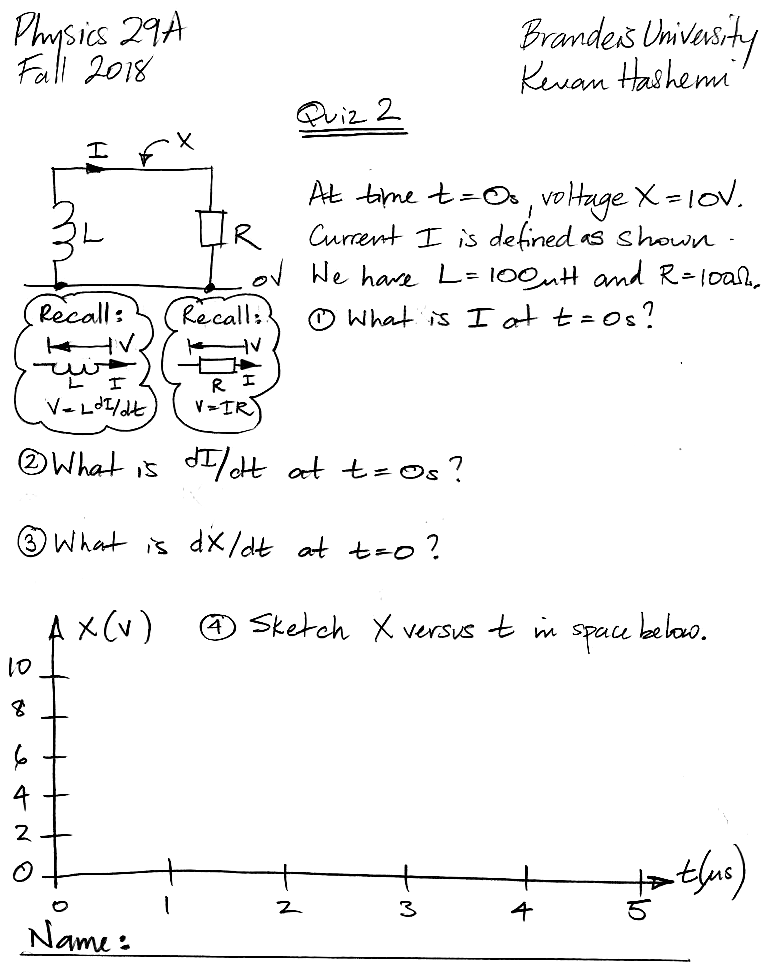 Physics 29A
Fall 2018
Brandeis University
Kevan Hashemi
Quiz 2
I
X
L
R
0V
At time t=0s, voltage X=10V.
Current I is defined as shown.
We have L=100µH and R=100Ω.
① What is I at t=0s?
Recall:
V
L I
V=LdI/dt
Recall:
V
R I
V=IR
② What is dI/dt at t=0s?
③ What is dX/dt at t=0?
X(V)
④ Sketch X versus t in space below.
10
8
6
4
2
0
t(µs)
0 1 2 3 4 5
Name: